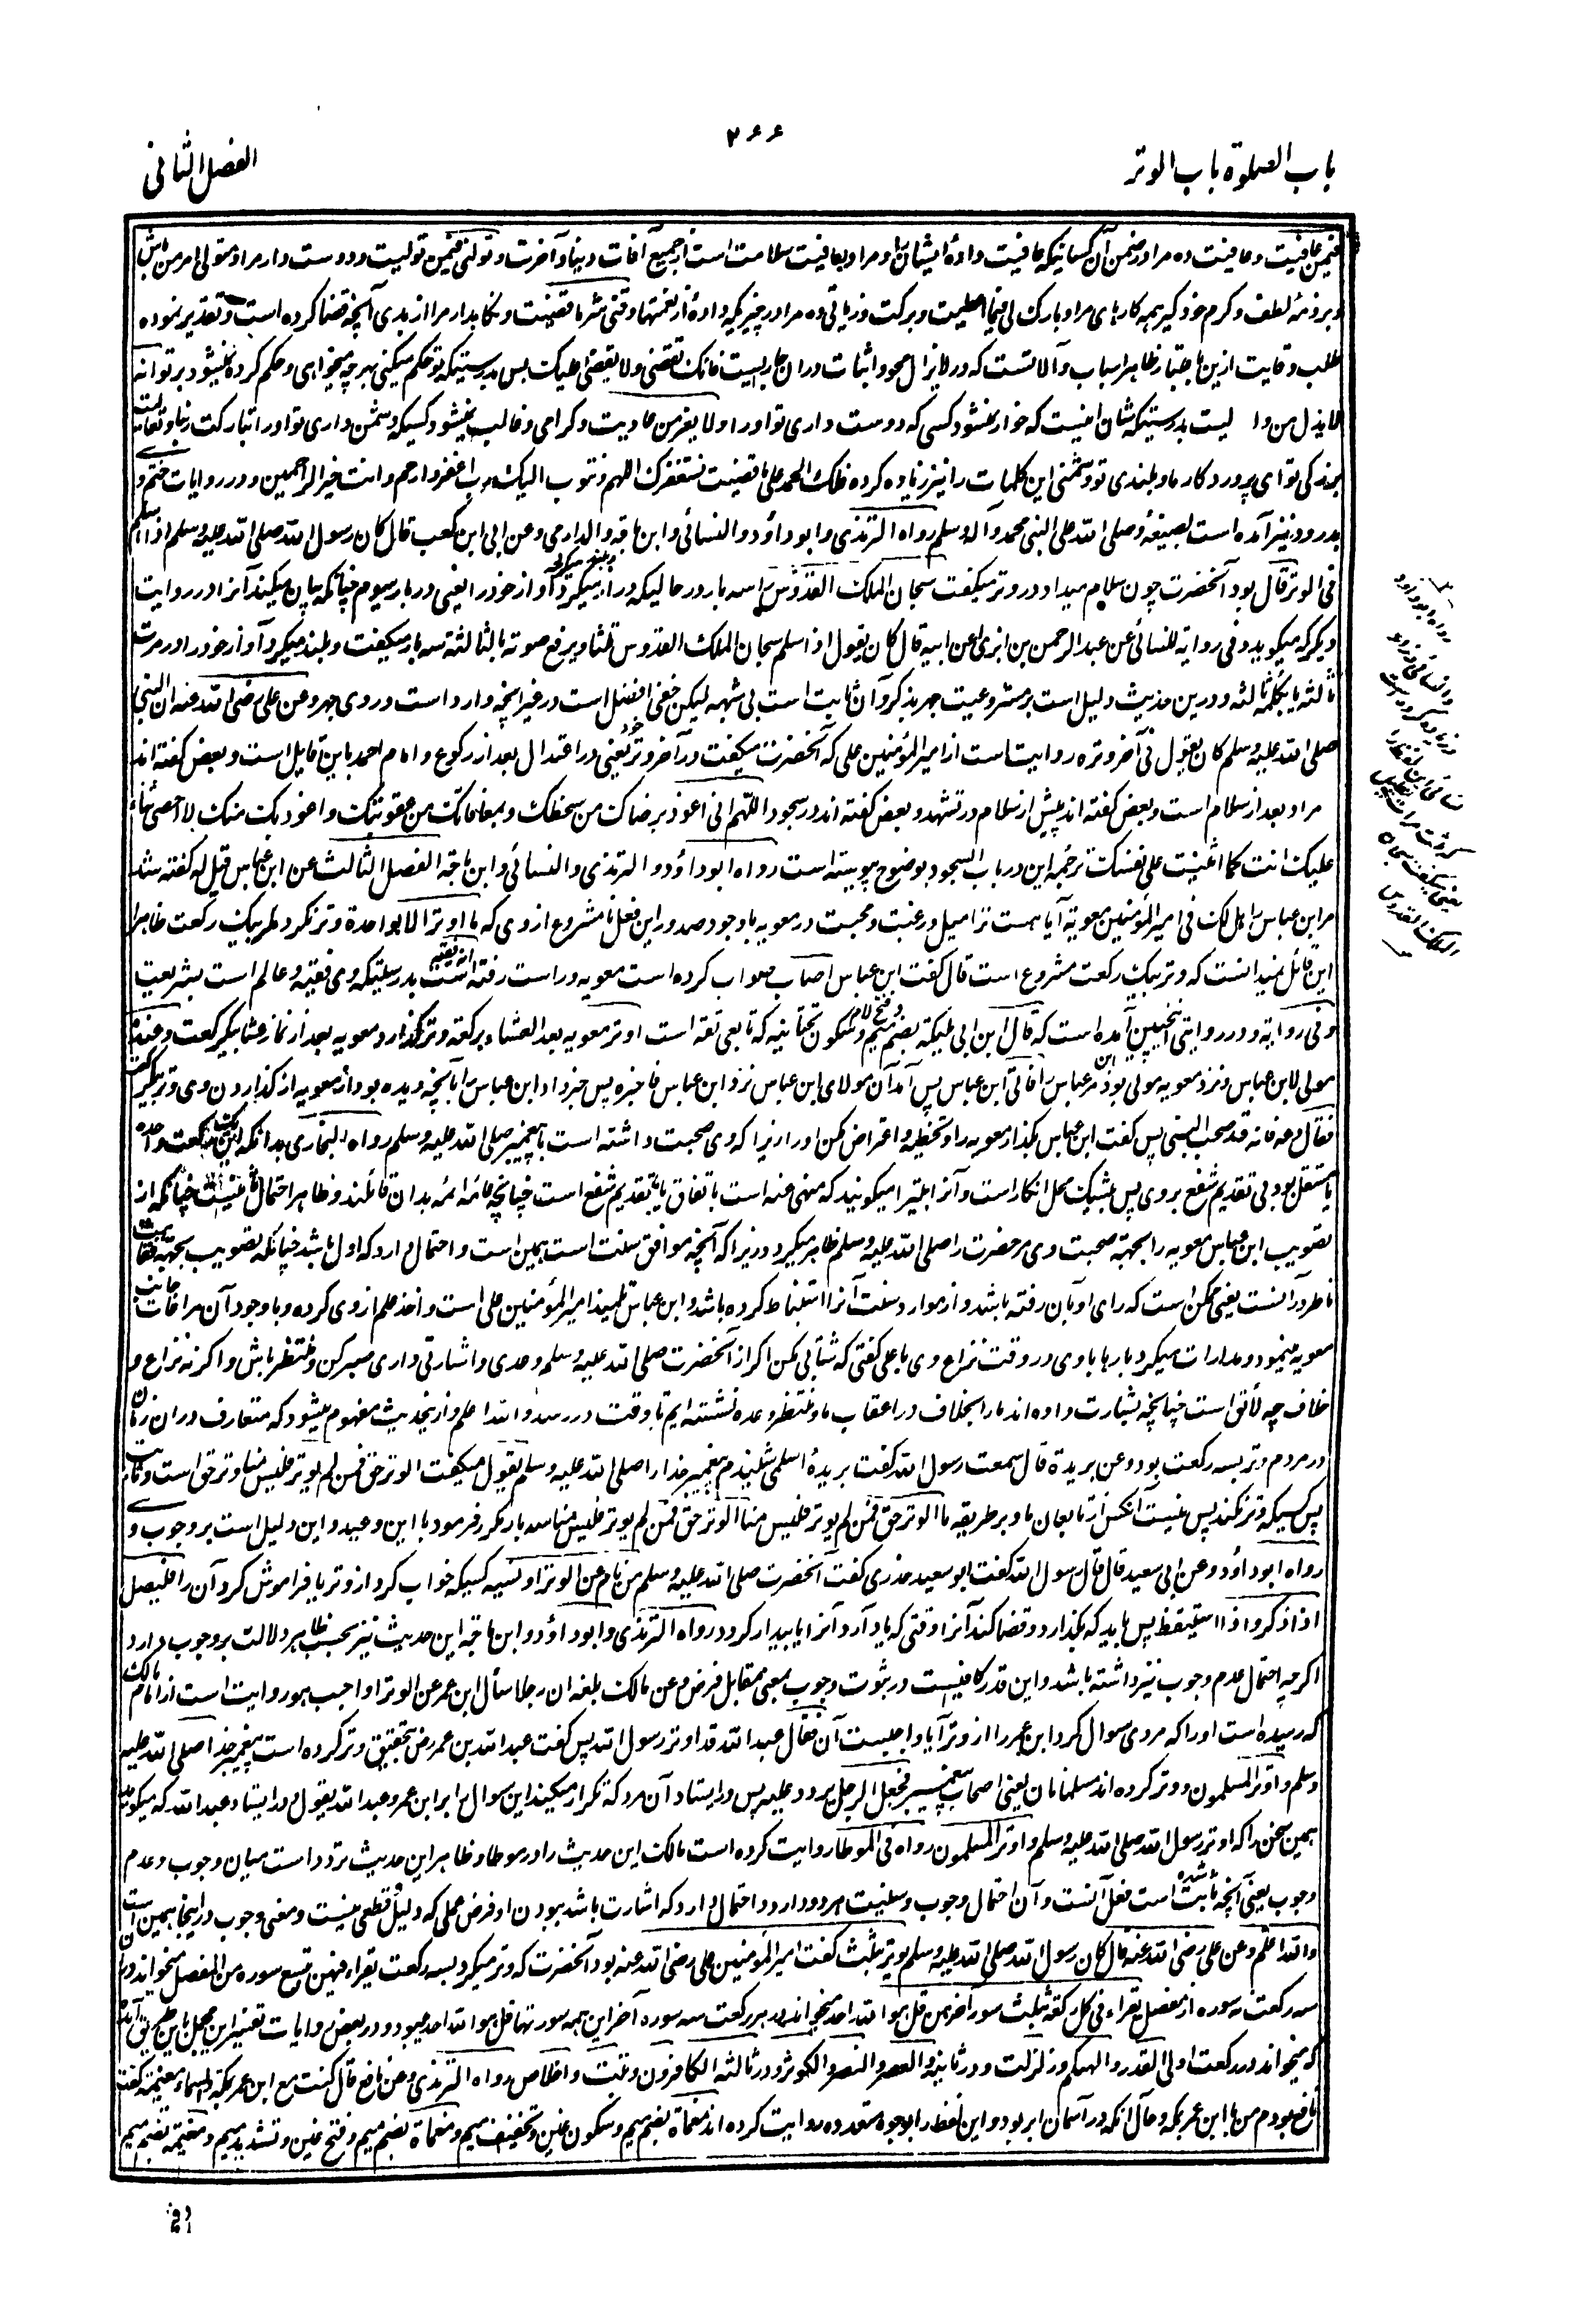 ۲۶۶
باب الصلوة باب الوتر
الفصل الثانی
فیمن عافیت وعافیت ده مرا در ضمن آن کسانیکه عافیت دادۀ ایشان را ومراد بعافیت سلامت است از جمیع آفات دنیا وآخرت وتولنی فیمن تولیت ودوست دار مرا ومتولی امر من باش
وبر ذمۀ لطف وکرم خود گیر همه کارهای مرا وبارک لی فیما اعطیت وبرکت وزیاتی ده مرا در چیزیکه دادۀ از نعمتها وقنی شر ما قضیت ونگاهدار مرا از بدی آنچه قضا کرده است وتقدیر نموده
طلب وقایت ازین باعتبار ظاهر اسباب وآلاتست که در لایزال محو واثبات دران جاریست فانک تقضی ولا یقضی علیک پس بدرستیکه تو حکم میکنی بهرچه میخواهی وحکم کرده نمیشود بر تو انه
لا یذل من والیت بدرستیکه شان اینست که خوار نمیشود کسی که دوست داری تو او را ولا یعز من عادیت وگرامی وغالب نمیشود کسیکه دشمن داری تو او را تبارکت ربنا وتعالیت
بزرگی تو ای پروردگار ما وبلندی تو وبیهقی این کلمات را نیز زیاده کرده فلک الحمد علی ما قضیت نستغفرک اللهم ونتوب الیک رب اغفر وارحم وانت خیر الراحمین ودر روایات ختم و
بدرود نیز آمده است بصیغۀ وصلی الله علی النبی محمد وآله وسلم رواه الترمذی وابوداؤد والنسائی وابن ماجة والدارمی وعن ابی ابن کعب قال کان رسول الله صلی الله علیه وسلم اذا سلم
فی الوتر قال بود آنحضرت چون سلام میداد در وتر میگفت سبحان الملک القدوس را سه بار در حالیکه دراز میکرد وبلند میکرد آواز خود را یعنی در بار سیوم چنانکه بیان میکند آنرا در روایت
دیگر که میگوید وفی روایة للنسائی عن عبد الرحمن بن ابزی عن ابیه قال کان یقول اذا سلم سبحان الملک القدوس ثلثا ویرفع صوته بالثالثة سه بار میگفت وبلند میکرد آواز خود را در مرتبه
ثالثه یا بکلمۀ ثالثه ودرین حدیث دلیل است بر مشروعیت جهر بذکر وآن ثابت است بی شبهه لیکن خفی افضل است در غیر آنچه وارد است در وی جهر وعن علی رضی الله عنه ان النبی
صلی الله علیه وسلم کان یقول فی آخر وتره روایت است از امیر المؤمنین علی که آنحضرت میگفت در آخر وتر خود یعنی در اعتدال بعد از رکوع وامام احمد باین قایل است وبعض گفته اند
مراد بعد از سلام است وبعض گفته اند پیش از سلام در تشهد وبعض گفته اند در سجود اللهم انی اعوذ برضاک من سخطک وبمعافاتک من عقوبتک واعوذ بک منک لا احصی ثناء
علیک انت کما اثنیت علی نفسک ترجمۀ این در باب السجود بوضوح پیوسته است رواه ابوداؤد والترمذی والنسائی وابن ماجة الفصل الثالث عن ابن عباس قیل له گفته شد
مر ابن عباس را هل لک فی امیر المؤمنین معویة آیا هست ترا میل ورغبت ومحبت در معویه باوجود صدور این فعل نامشروع از وی که ما اوتر الا بواحدة وتر نکرد مگر بیک رکعت ظاهرا
این قائل نمیدانست که وتر بیک رکعت مشروع است قال گفت ابن عباس اصاب صواب کرده است معویه وراست رفته است انه فقیه بدرستیکه وی فقیه وعالم است بشریعت
وفی روایة ودر روایتی اینچنین آمده است که قال ابن ابی ملیکة بضم میم وفتح لام وسکون تحتانیه که تابعی ثقه است اوتر معویه بعد العشاء برکعة وتر گذارد معویه بعد از نماز عشا بیک رکعت وعنده
مولی لابن عباس ونزد معویه مولی بود مر ابن عباس را فاتی ابن عباس پس آمد آن مولای ابن عباس نزد ابن عباس فاخبره پس خبر داد ابن عباس را بآنچه دیده بود از معویه از گذاردن وی وتر بیک رکعت
فقال دعه فانه قد صحب النبی پس گفت ابن عباس بگذار معویه را وتخطیه واعتراض مکن او را زیرا که وی صحبت داشته است با پیغمبر صلی الله علیه وسلم رواه البخاری بدانکه این یک رکعت واحده
یا مستقل بود بی تقدیم شفع بر وی پس بیشک محل انکار است وآنرا بتیرا میگویند که منهی عنه است باتفاق یا بتقدیم شفع است چنانچه عامه ائمه بدان قائلند وظاهر احتمال ثانیست چنانکه از
تصویب ابن عباس معویه را بجهة صحبت وی مر حضرت را صلی الله علیه وسلم ظاهر میگردد زیرا که آنچه موافق سنت است همین است واحتمال دارد که اول باشد چنانکه تصویب بجهة فقاهت
ناظر در آنست یعنی ممکن است که رای او بآن رفته باشد واز موارد سنت آنرا استنباط کرده باشد وابن عباس تلمیذ امیر المؤمنین علی است واخذ علم از وی کرده وباوجود آن مراعات جانب
معویه مینمود ومدارات میکرد بارها با وی در وقت نزاع وی با علی گفتی که شتابی مکن اگر از آنحضرت صلی الله علیه وسلم وعدی واشارتی داری صبر کن ومنتظر باش واگر نه نزاع و
خلاف چه لائق است چنانچه بشارت داده اند ما را بخلاف در اعقاب ما ومنتظر وعده نشسته ایم تا وقت در رسد والله اعلم وازینحدیث مفهوم میشود که متعارف دران زمان
در مردم وتر بسه رکعت بود وعن بریدة قال سمعت رسول الله گفت بریدۀ اسلمی شنیدم پیغمبر خدا را صلی الله علیه وسلم یقول میگفت الوتر حق فمن لم یوتر فلیس منا وتر حق است وثابت
پس کسیکه وتر نکند پس نیست آنکس از تابعان ما وبر طریقه ما الوتر حق فمن لم یوتر فلیس منا الوتر حق فمن لم یوتر فلیس منا سه بار مکرر فرمود با این وعید واین دلیل است بر وجوب و
رواه ابوداؤد وعن ابی سعید قال قال رسول الله گفت ابوسعید خدری گفت آنحضرت صلی الله علیه وسلم من نام عن الوتر او نسیه کسیکه خواب کرد از وتر یا فراموش کرد آن را فلیصل
اذا ذکر واذا استیقظ پس باید که بگذارد وقضا کند آنرا وقتی که یاد آرد آنرا یا بیدار گردد رواه الترمذی وابوداؤد وابن ماجة این حدیث نیز بحسب ظاهر دلالت بر وجوب دارد
اگرچه احتمال عدم وجوب نیز داشته باشد واین قدر کافیست در ثبوت وجوب بمعنی مقابل فرض وعن مالک بلغه ان رجلا سأل ابن عمر عن الوتر اواجب هو روایت است از امام مالک
که رسیده است او را که مردی سوال کرد ابن عمر را از وتر آیا واجبست آن فقال عبد الله قد اوتر رسول الله پس گفت عبد الله بن عمر رض بتحقیق وتر کرده است پیغمبر خدا صلی الله علیه
وسلم واوتر المسلمون ووتر کرده اند مسلمانان یعنی اصحاب پیغمبر فجعل الرجل یردد علیه پس در ایستاد آن مرد که تکرار میکند این سوال را بر ابن عمر وعبد الله یقول ودر ایستاد عبد الله که میگوید
همین سخن را که اوتر رسول الله صلی الله علیه وسلم واوتر المسلمون رواه فی الموطا روایت کرده است مالک این حدیث را در موطا وظاهر این حدیث تردد است میان وجوب وعدم
وجوب یعنی آنچه ثابت شده است فعل آنست وآن احتمال وجوب وسنیت هر دو دارد واحتمال دارد که اشارت باشد ببودن او فرض عملی که دلیل قطعی نیست ومعنی وجوب در اینجا همین است
والله اعلم وعن علی رضی الله عنه قال کان رسول الله صلی الله علیه وسلم یوتر بثلث گفت امیر المؤمنین علی رضی الله عنه بود آنحضرت که وتر میکرد بسه رکعت یقرأ فیهن بتسع سوره من المفصل میخواند دران
سه رکعت نه سوره از مفصل یقرأ فی کل رکعة بثلث سور آخرهن قل هو الله احد میخواند در هر رکعت سه سوره آخر این همه سورتها قل هو الله احد میبود ودر بعض روایات تفسیر این مجمل باین طریق آمده
که میخواند در رکعت اولی القدر والهکم وزلزلت ودر ثانیه والعصر والنصر والکوثر ودر ثالثه الکافرون وتبت واخلاص رواه الترمذی وعن نافع قال کنت مع ابن عمر بمکة والسماء مغیمة گفت
نافع بودم من با ابن عمر بمکه وحال آنکه در آسمان ابر بود واین لفظ را بوجوه متعدده روایت کرده اند مغماة بضم میم وسکون غین وتخفیف میم ومغماة بضم میم وفتح غین وتشدید میم ومغیمة بضم میم
رواه ابوداود
والنسائی وزاد